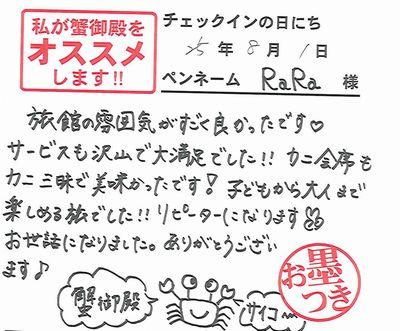 私が蟹御殿を
オススメ
します!!
チェックインの日にち
25年 8月 1日
ペンネーム RaRa 様
旅館の雰囲気がすごく良かったです♡
サービスも沢山で大満足でした!! カニ会席も
カニ三昧で美味かったです! 子どもから大人まで
楽しめる旅でした!! リピーターになります
お世話になりました。ありがとうござい
ます♪
蟹御殿
サイコー
お墨
つき